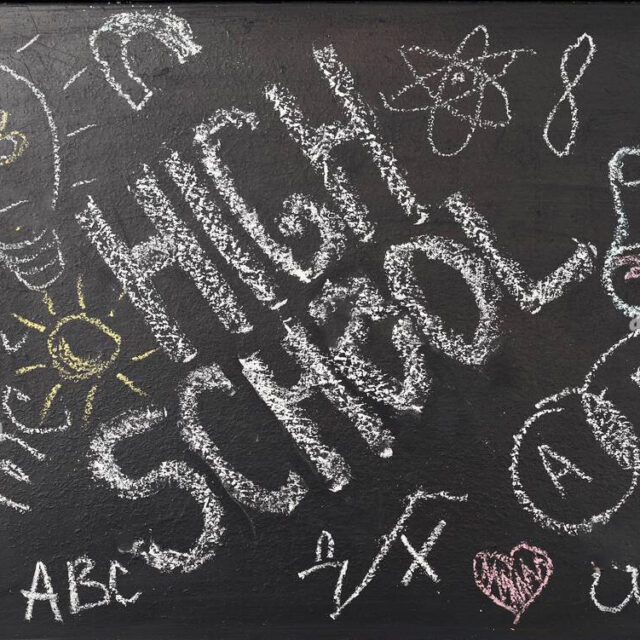 HIGH
SCHOOL
A
ABC
n√x